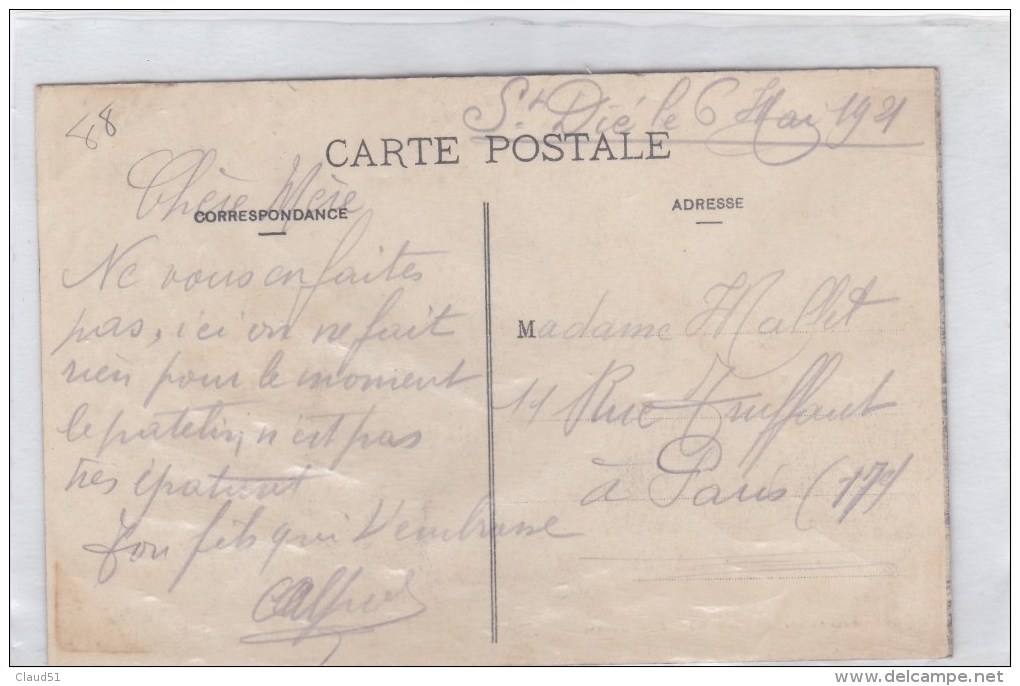 88
St Dié le 6 Mai 1921
CARTE POSTALE
Chère Mère
CORRESPONDANCE
ADRESSE
Ne vous en faites
pas, ici on ne fait
rien pour le moment
le patelin n'est pas
très épatant
Ton fils qui t'embrasse
Alfred
Madame Mallet
11 Rue Truffaut
à Paris (17e)
Claud51
www.delcampe.net